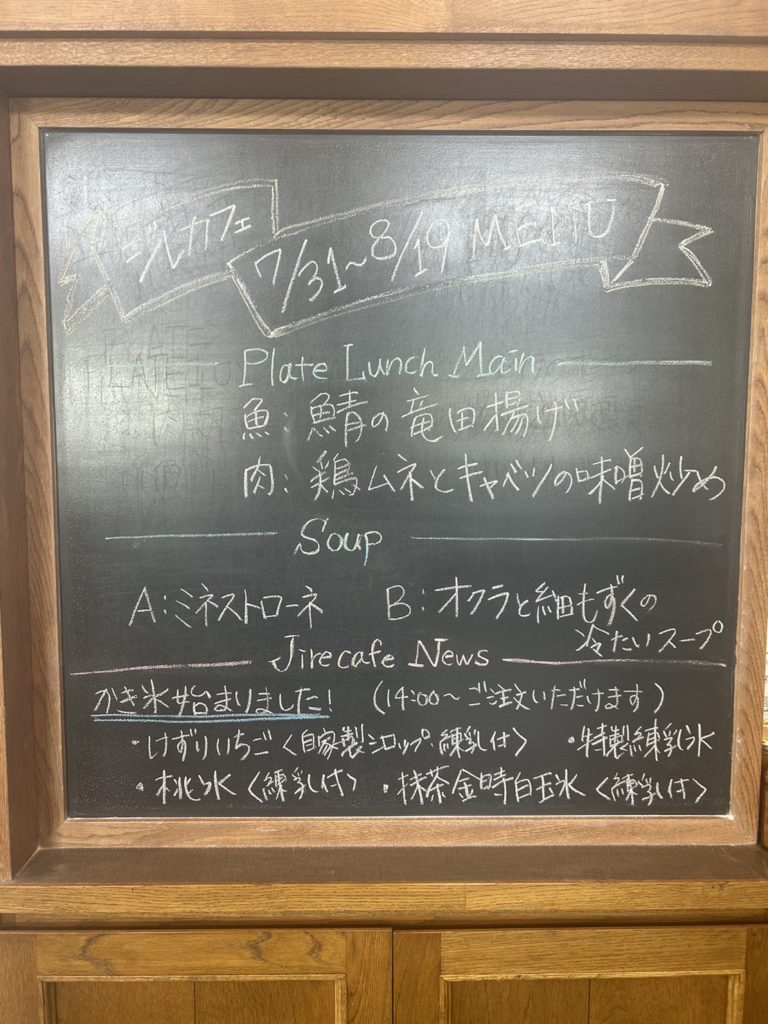 ジルカフェ 7/31~8/19 MENU
Plate Lunch Main
魚:鯖の竜田揚げ
肉:鶏ムネとキャベツの味噌炒め
Soup
A:ミネストローネ B:オクラと細もずくの
冷たいスープ
Jirecafe News
かき氷始まりました! (14:00～ご注文いただけます)
・けずりいちご〈自家製シロップ・練乳付〉 ・特製練乳氷
・桃氷〈練乳付〉 ・抹茶金時白玉氷〈練乳付〉